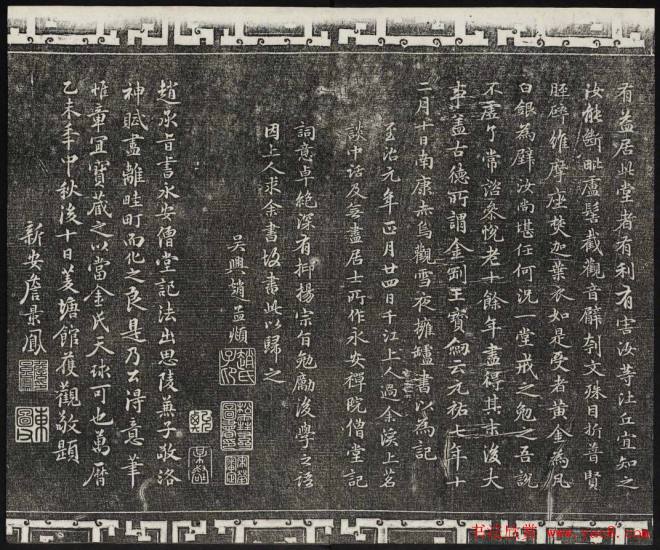 有益居此堂者有利有害汝等比丘宜知之
汝能斷毗盧髻截觀音臂刳文殊目折普賢
脛碎維摩座焚迦葉衣如是受者黃金為瓦
白銀為壁汝尚堪任何況一堂戒之勉之吾說
不虛了常諮參悅老十餘年盡得其末後大
事蓋古德所謂金剛王寶劒云元祐七年十
二月十日南康赤烏觀雪夜擁罏書以為記
至治元年正月廿四日千江上人過余溪上茗
談中話及無盡居士所作永安禪院僧堂記
詞意卓絕深有抑揚宗旨勉勵後學之語
因上人求余書故書此以歸之
吳興趙孟頫
趙氏子昂
趙承旨書永安僧堂記法出思陵兼子敬洛
神賦盡離畦町而化之良是乃公得意筆
惟章宜寶藏之以當金氏天球可也萬曆
乙未年中秋後十日菱塘館獲觀敬題
新安詹景鳳
東圖
书法欣赏 www.yac8.com